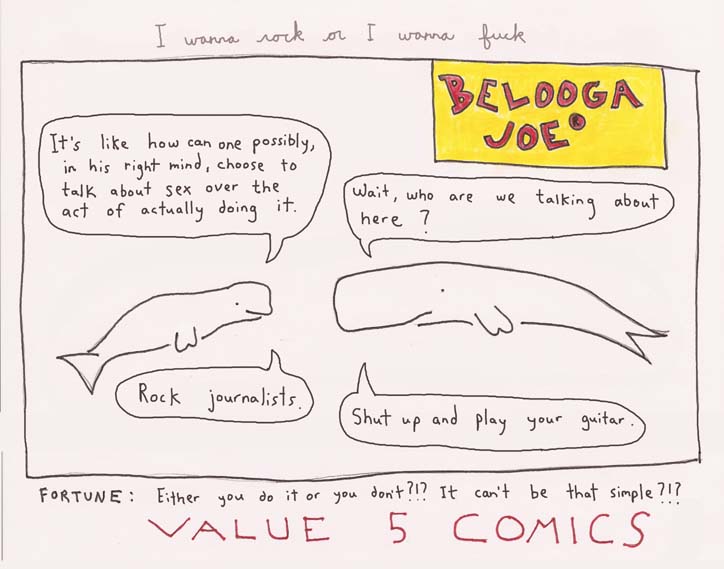 I wanna rock or I wanna fuck
BELOOGA
JOE®
It's like how can one possibly,
in his right mind, choose to
talk about sex over the
act of actually doing it.
Wait, who are we talking about
here ?
Rock journalists.
Shut up and play your guitar.
FORTUNE: Either you do it or you don't?!? It can't be that simple?!?
VALUE 5 COMICS